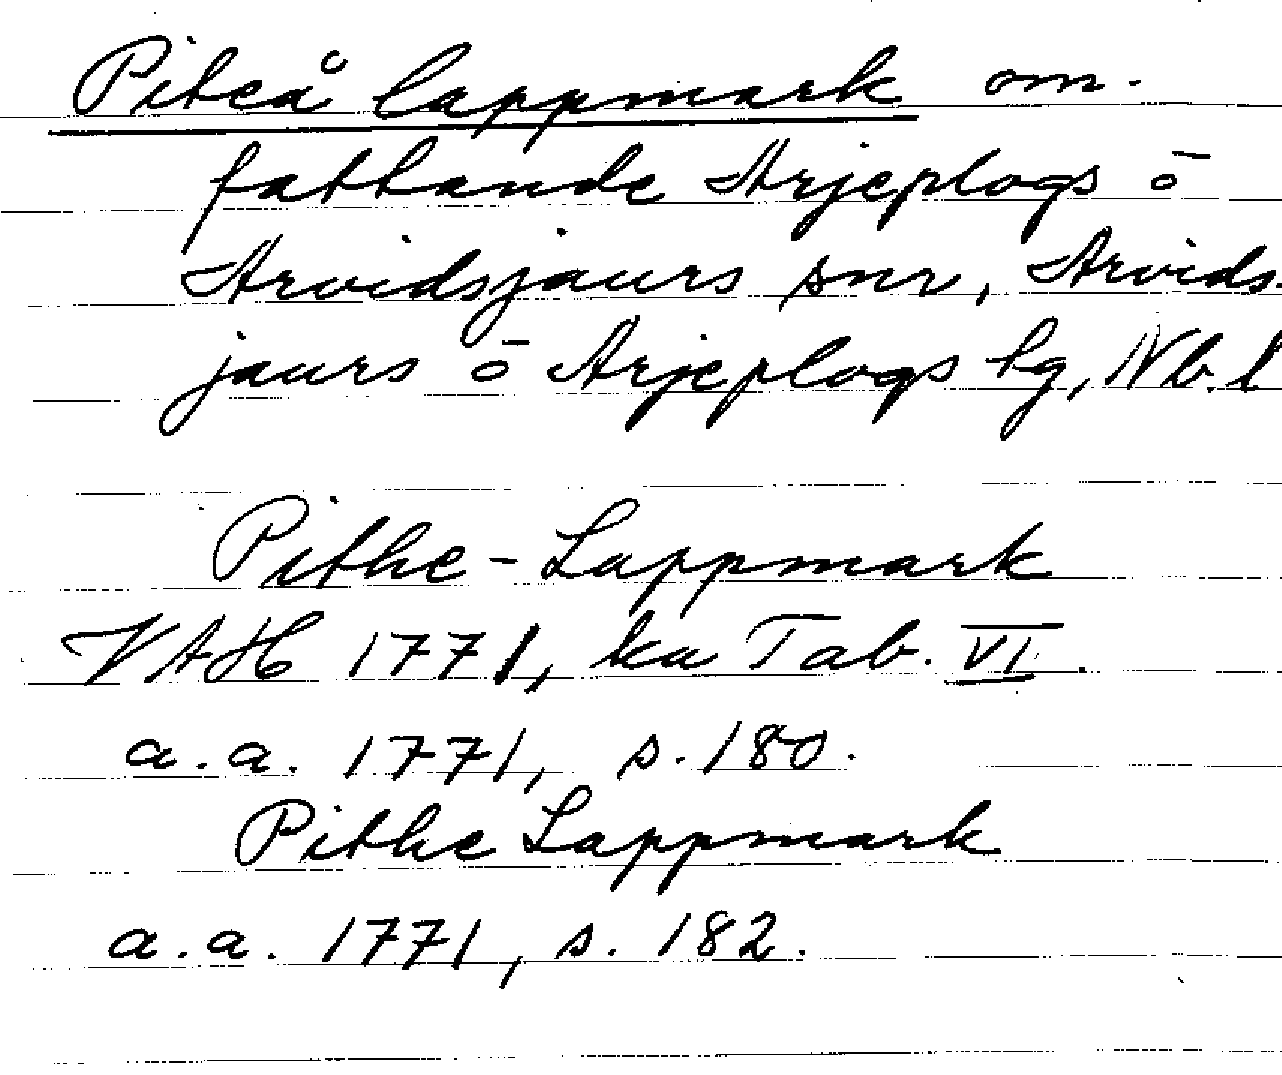 Piteå lappmark om-
fattande Arjeplogs ō
Arvidsjaurs snr, Arvids-
jaurs ō Arjeplogs tg, Nb. l
Pithe-Lappmark
VAH 1771, ka Tab. VI.
a.a. 1771, s. 180.
Pithe Lappmark
a.a. 1771, s. 182.